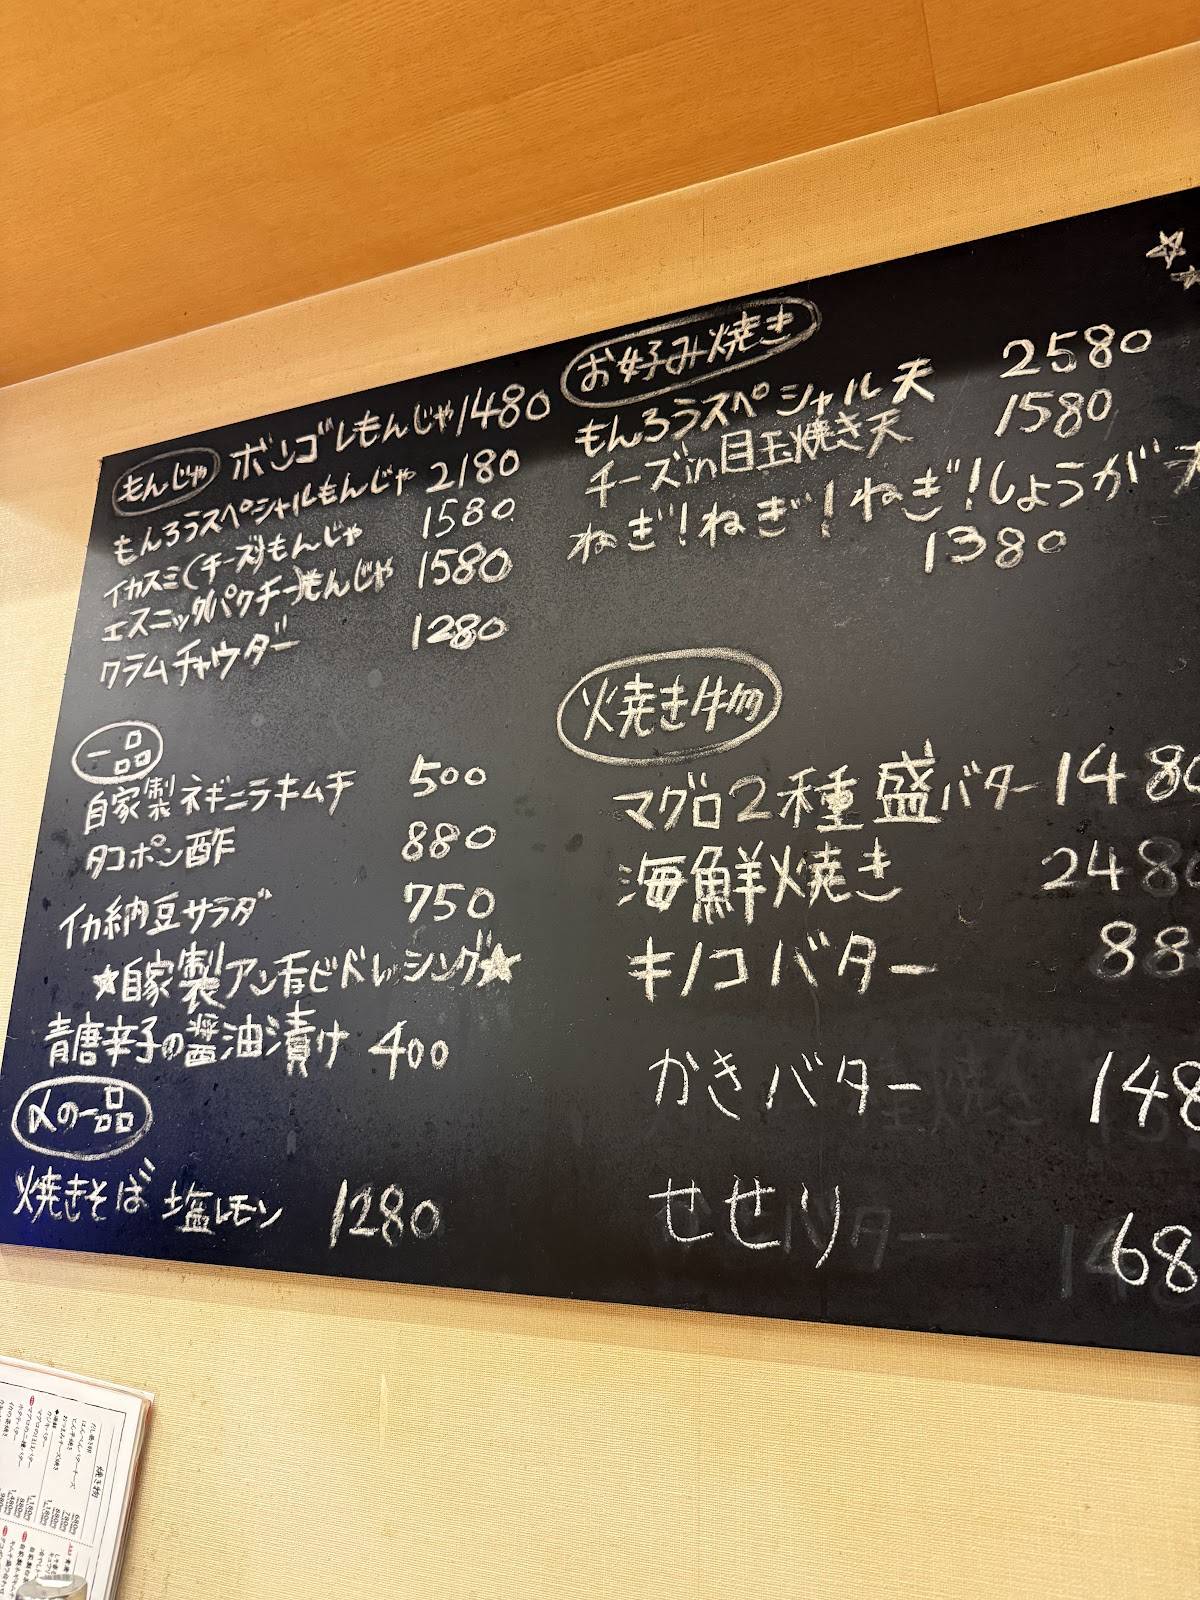 もんじゃ
ボンゴレもんじゃ 1480
もんろうスペシャルもんじゃ 2180
イカスミ(チーズ)もんじゃ 1580
エスニック(パクチー)もんじゃ 1580
クラムチャウダー 1280
一品
自家製ネギニラキムチ 500
タコポン酢 880
イカ納豆サラダ 750
★自家製アンチョビドレッシング★
青唐辛子の醤油漬け 400
〆の一品
焼きそば 塩レモン 1280
お好み焼き
もんろうスペシャル天 2580
チーズin目玉焼き天 1580
ねぎ!ねぎ!ねぎ!しょうが天
1380
焼き物
マグロ2種盛バター 1480
海鮮焼き 248
キノコバター 88
かきバター 148
せせり 68
焼き物